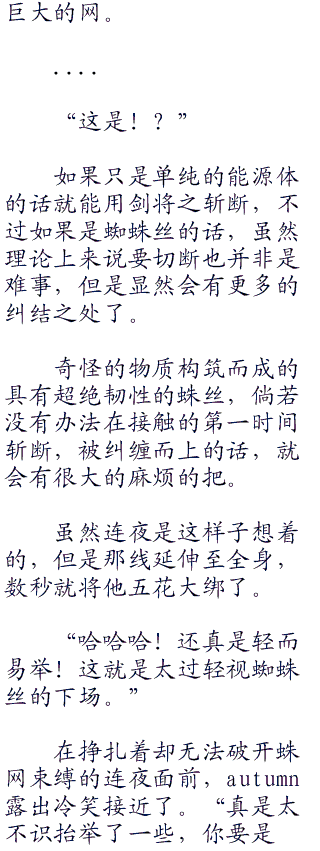 巨大的网。
....
“这是！？”
如果只是单纯的能源体
的话就能用剑将之斩断，不
过如果是蜘蛛丝的话，虽然
理论上来说要切断也并非是
难事，但是显然会有更多的
纠结之处了。
奇怪的物质构筑而成的
具有超绝韧性的蛛丝，倘若
没有办法在接触的第一时间
斩断，被纠缠而上的话，就
会有很大的麻烦的把。
虽然连夜是这样子想着
的，但是那线延伸至全身，
数秒就将他五花大绑了。
“哈哈哈！还真是轻而
易举！这就是太过轻视蜘蛛
丝的下场。”
在挣扎着却无法破开蛛
网束缚的连夜面前，autumn
露出冷笑接近了。“真是太
不识抬举了一些，你要是